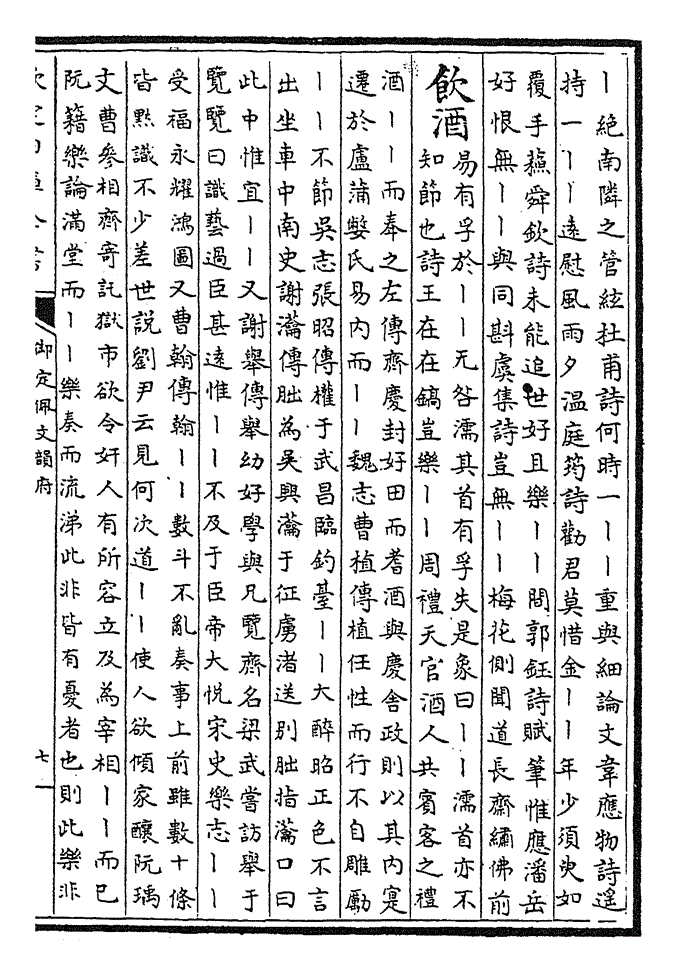 丨絶南隣之管絃杜甫詩何時一丨丨重與細論文韋應物詩遥
持一丨丨遠慰風雨夕温庭筠詩勸君莫惜金丨丨年少須臾如
覆手蘇舜欽詩未能追世好且樂丨丨問郭鈺詩賦筆惟應潘岳
好恨無丨丨與同斟虞集詩豈無丨丨梅花側聞道長齋繡佛前
飲酒
易有孚於丨丨无咎濡其首有孚失是象曰丨丨濡首亦不
知節也詩王在在鎬豈樂丨丨周禮天官酒人共賓客之禮
酒丨丨而奉之左傳齊慶封好田而耆酒與慶舍政則以其内寔
遷於盧蒲嫳氏易内而丨丨魏志曹植傳植任性而行不自雕勵
丨丨不節吳志張昭傳權于武昌臨釣臺丨丨大醉昭正色不言
出坐車中南史謝瀹傳朏為吳興瀹于征虜渚送别朏指瀹口曰
此中惟宜丨丨又謝舉傳舉幼好學與兄覽齊名梁武嘗訪舉于
覽覽曰識藝過臣甚遠惟丨丨不及于臣帝大悦宋史樂志丨丨
受福永耀鴻圖又曹翰傳翰丨丨數斗不亂奏事上前雖數十條
皆黙識不少差世説劉尹云見何次道丨丨使人欲傾家釀阮瑀
文曹參相齊寄託獄市欲令奸人有所容立及為宰相丨丨而已
阮籍樂論滿堂而丨丨樂奏而流涕此非皆有憂者也則此樂非
御定佩文韻府
七